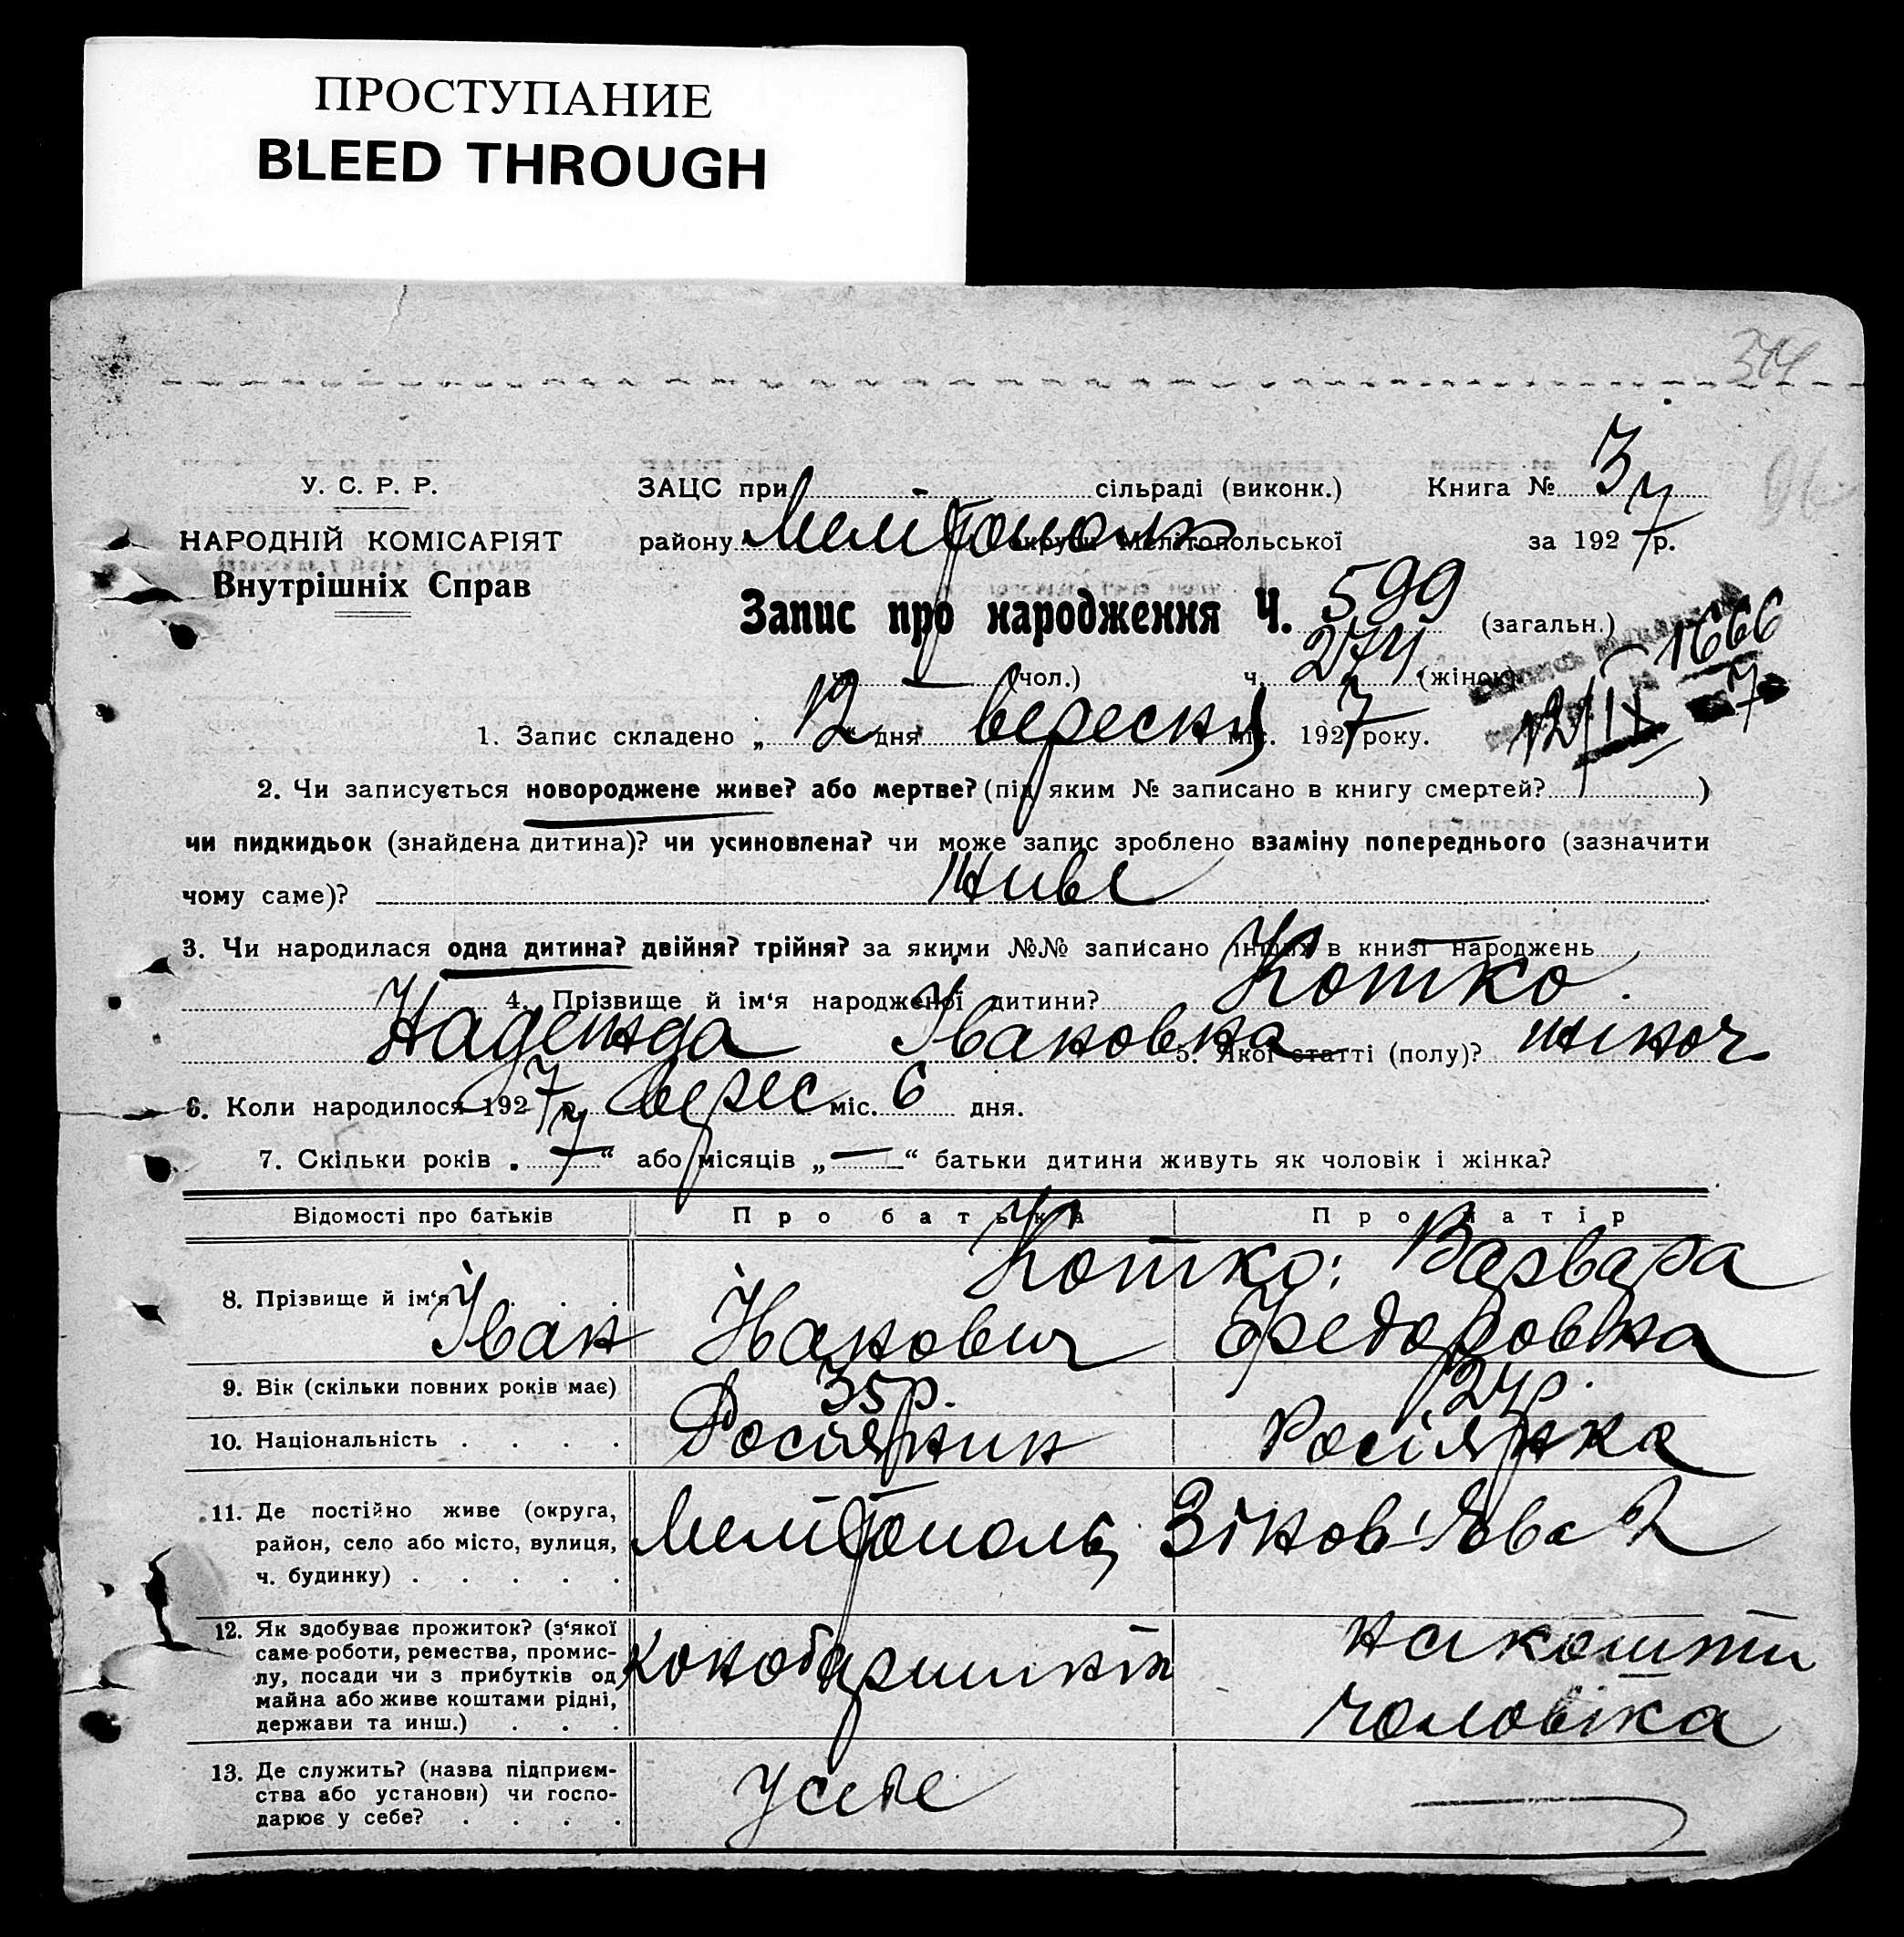 ПРОСТУПАНИЕ
BLEED THROUGH
У. С. Р. Р.
НАРОДНІЙ КОМІСАРІЯТ
Внутрішніх Справ
ЗАЦС при сільраді (виконк.) Книга № 3
району Мелітополь округи Мелітопольської за 1927 р.
Запис про народження Ч. 599 (загальн.)
ч. — (чол.) ч. 274 (жіноч.)
1666
12/IX 7
1. Запис складено „ 12 " дня вересня міс. 1927 року.
2. Чи записується новороджене живе? або мертве? (під яким № записано в книгу смертей? )
чи пидкидьок (знайдена дитина)? чи усиновлена? чи може запис зроблено взаміну попереднього (зазначити
чому саме)? живе
3. Чи народилася одна дитина? двійня? трійня? за якими №№ записано інших в книзі народжень —
4. Прізвище й ім'я народженої дитини? Котко
Надежда Івановна 5. Якої статті (полу)? жіноч
6. Коли народилося 1927 р. верес міс. 6 дня.
7. Скільки років „ 7 “ або місяців „ — “ батьки дитини живуть як чоловік і жінка?
Відомості про батьків Про батька Про матір
8. Прізвище й ім'я . . . Котко: Варвара
Іван Іванович Федоровна
9. Вік (скільки повних років має) 35 р. 24 р.
10. Національність . . . . Росіянин Росіянка
11. Де постійно живе (округа,
район, село або місто, вулиця,
ч. будинку) . . . . . Мелітополь, Зіновʼєва 2
12. Як здобуває прожиток? (з'якої
саме роботи, ремества, промис-
лу, посади чи з прибутків од
майна або живе коштами рідні,
держави та инш.) . . .
на кошти
чоловіка
13. Де служить? (назва підприєм-
ства або установи) чи госпо-
дарює у себе? . . . . у себе —